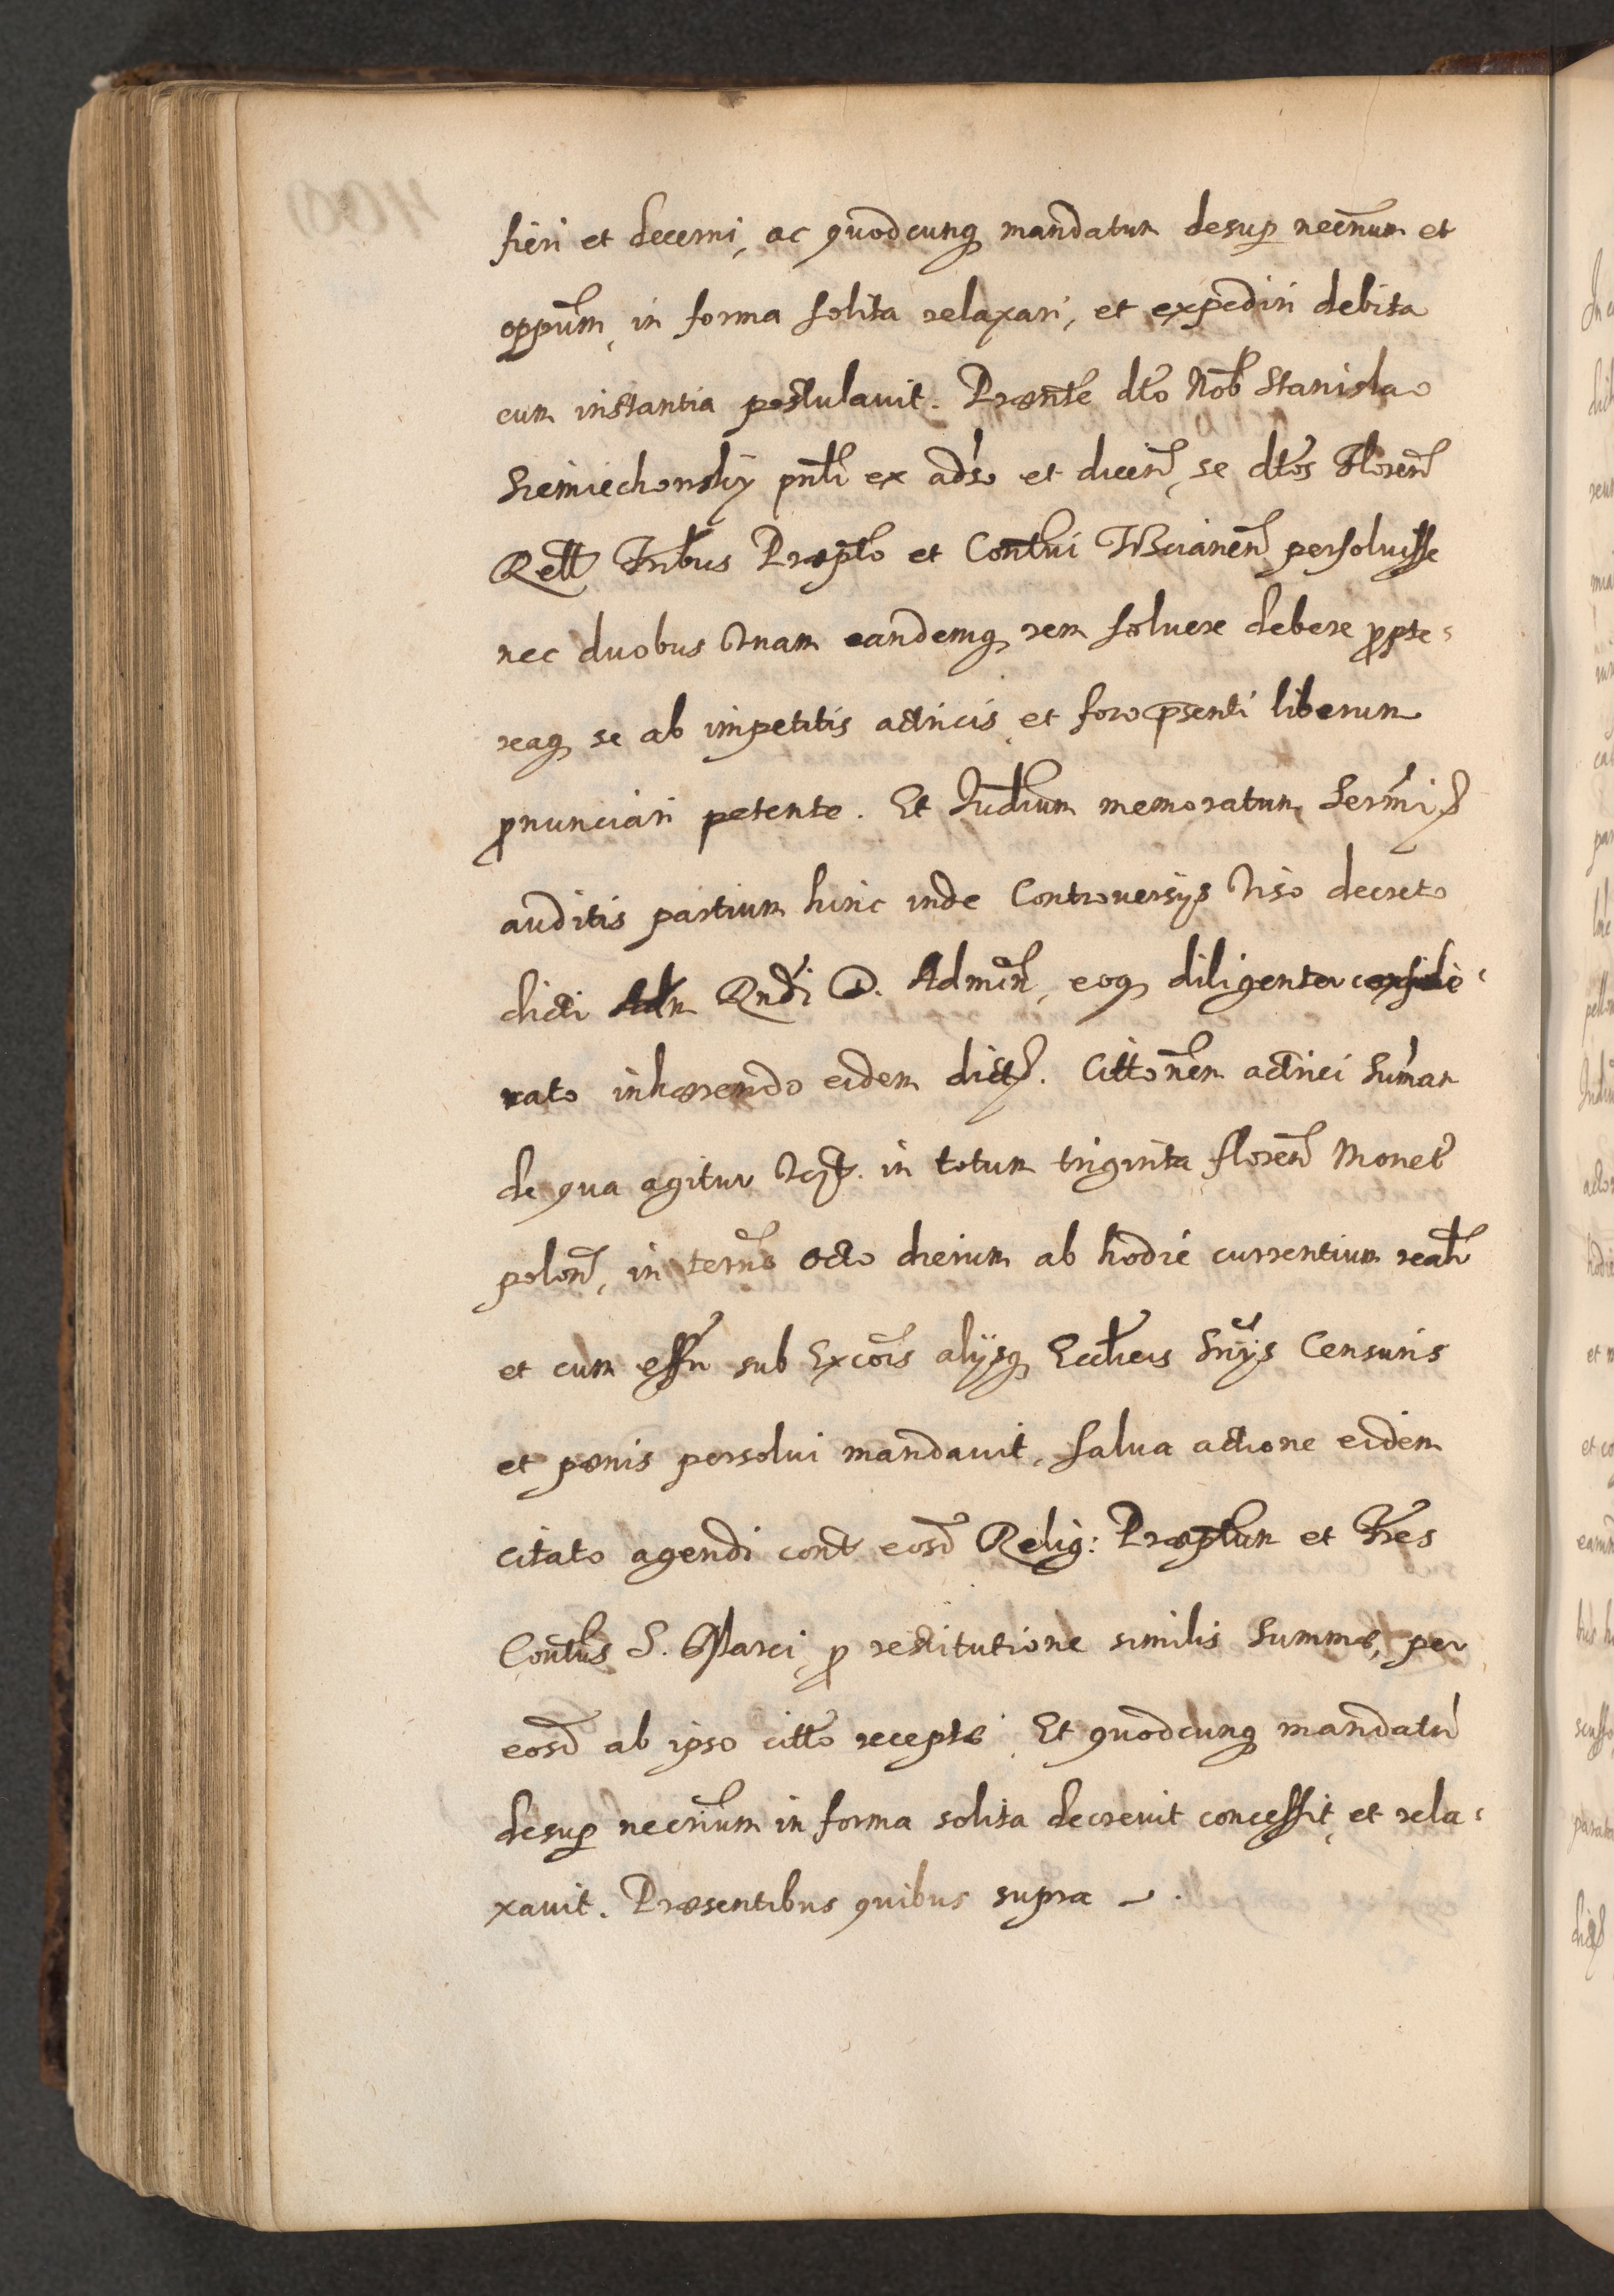 fieri et decerni, ac quodcunq mandatum desup necrium et
oppnm, in forma solita relaxari, et expediri debita
cum instantia postulavit. Præsnte dto Nob Stanislao
Siemiechonskÿ pnli ex adso et dicen, se dtos Floren
Rell Fribus Præpto et Contui persoluisse
nec duobus Vnam eandemq rem soluere debere ppte=
reaq se ab impetitis actricis et foro psenti liberum
pnunciari petente. Et Judium memoratum
auditis partium hinc inde Controuersÿs Viso decreto
dicti Rndi D. Admin, eoq diligenter conside=
rato inhærendo eidem dict. Cittonem actrici Sumam
de qua agitur Vcʒt. in totum triginta floren Monet
polon, in termo octo dierum ab hodie currentium realr
et cum effu sub Excois alÿsq Ecclicis Sniÿs Censuris
et pænis persolui mandauit, salua actione eidem
citato agendi cont eosd Relig: Præptum et Fres
Contus S. Marci p restitutione similis Summæ, per
eosd ab ipso citto receptæ. Et quodcunq mandatu
desup necrium in forma solita decreuit concessit, et rela=
xauit. Præsentibus quibus supra —.